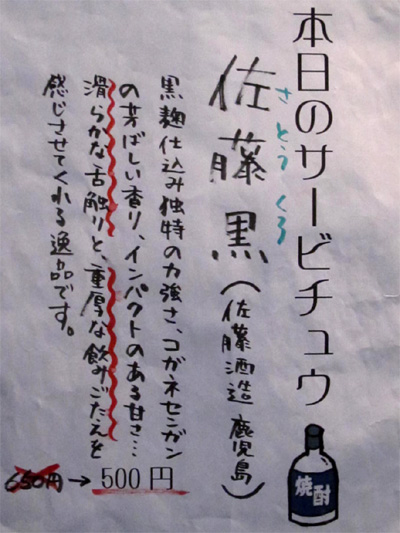 本日のサービチュウ
さとうくろ
佐藤黒(佐藤酒造 鹿児島)
黒麹仕込み独特の力強さ、コガネセンガン
の芳ばしい香り、インパクトのある甘さ…
滑らかな舌触りと、重厚な飲みごたえを
感じさせてくれる逸品です。
650円→500円
焼酎